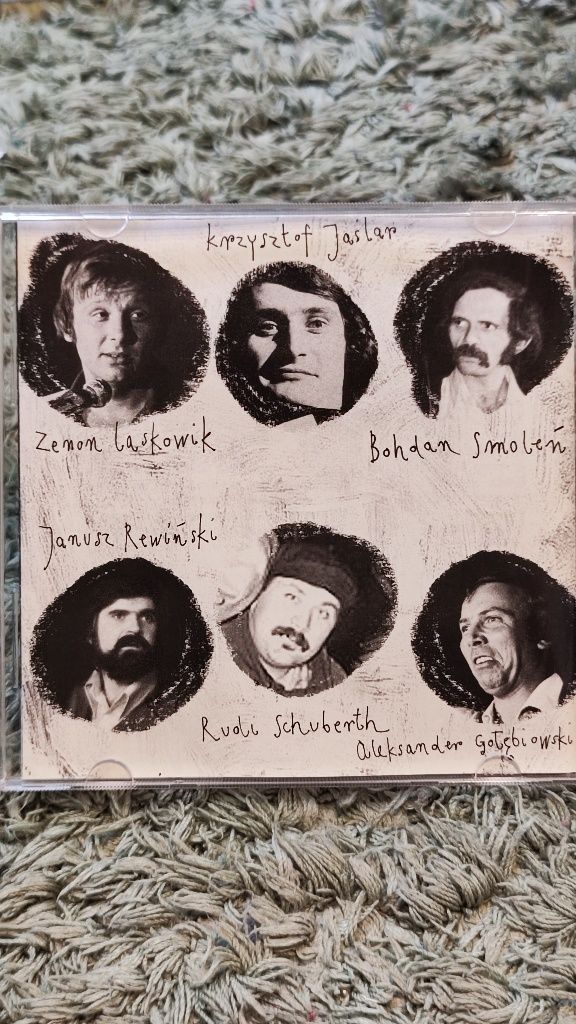 Krzysztof Jaślar
Zenon Laskowik
Bohdan Smoleń
Janusz Rewiński
Rudi Schuberth
Aleksander Gołębiowski